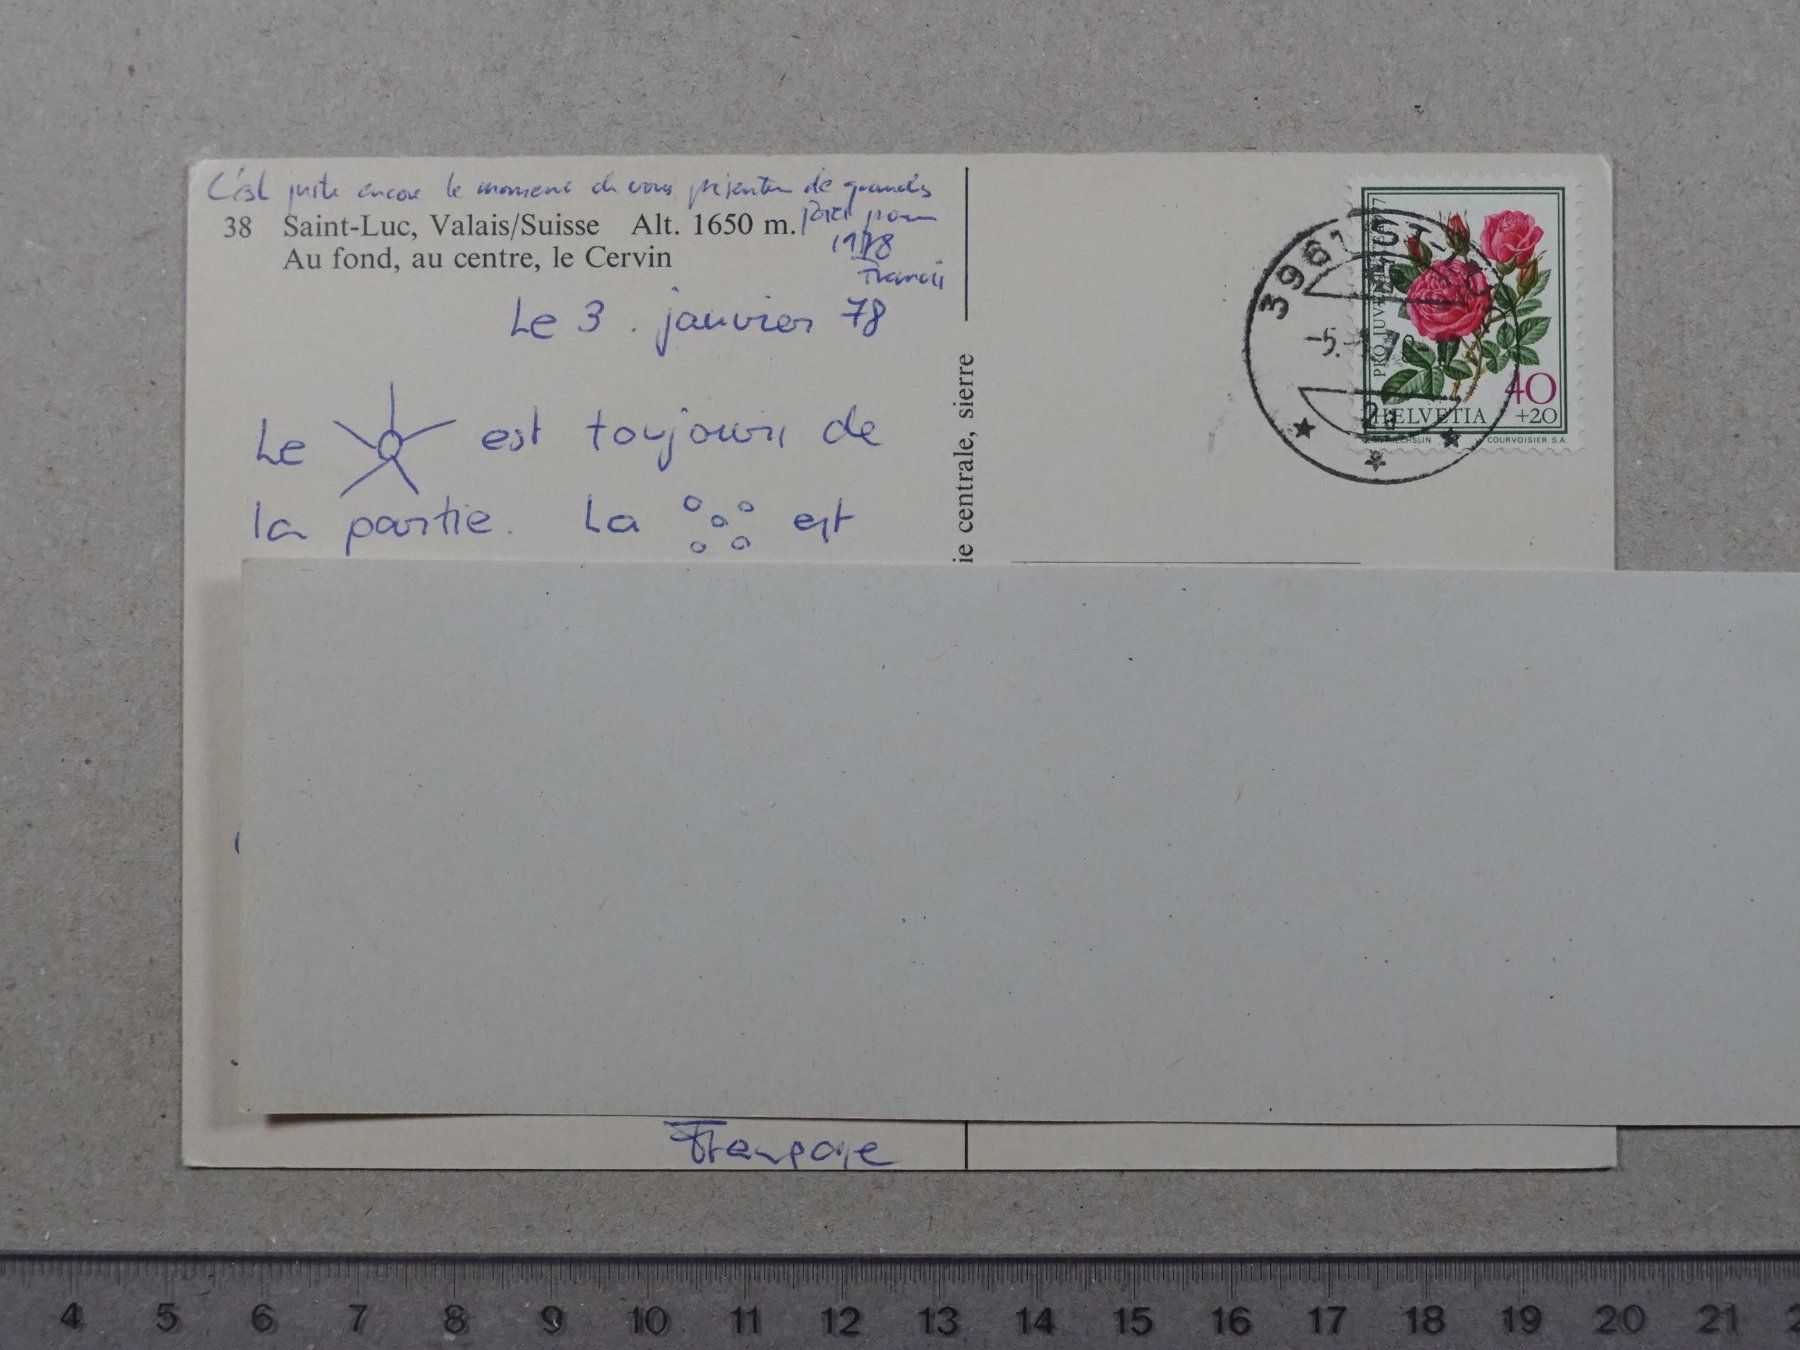 C'est juste encore le moment de vous présenter de grands
38 Saint-Luc, Valais/Suisse Alt. 1650 m.
pour
1978
Au fond, au centre, le Cervin
Francis
Le 3. janvier 78
Le est toujours de
la partie. La est
Françoise
ie centrale, sierre
3961 ST-
-5.-1.78-
PRO JUVENTUTE 1977
40
+20
HELVETIA
COURVOISIER S.A.
4 5 6 7 8 9 10 11 12 13 14 15 16 17 18 19 20 21